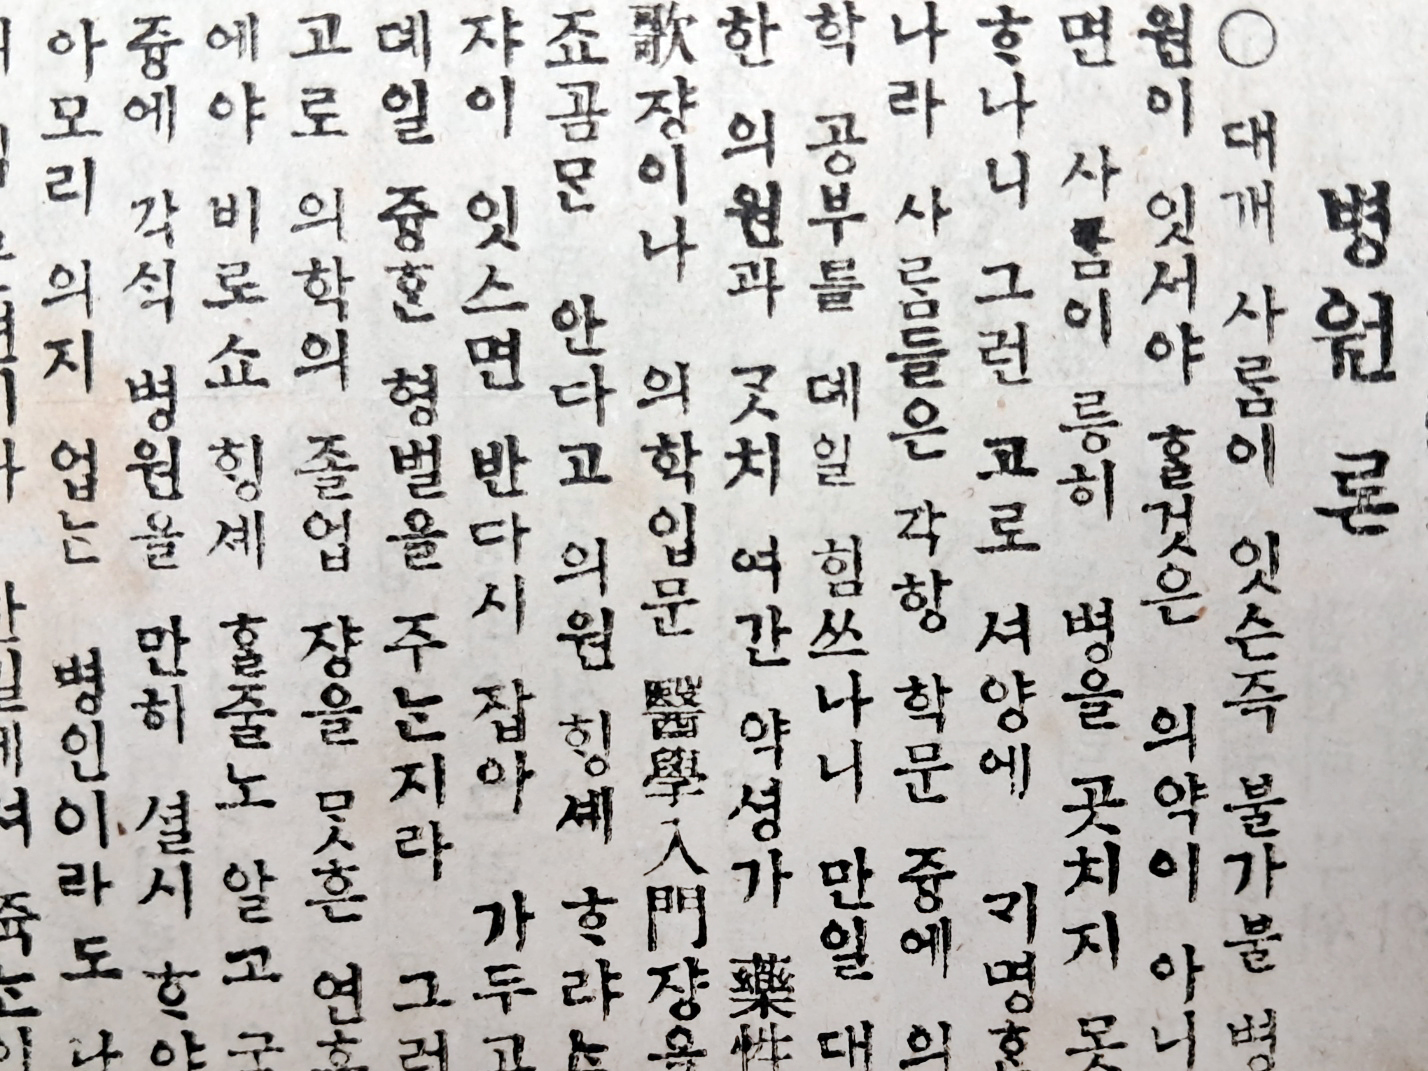 병원론
○ 대개 사ᄅᆞᆷ이 잇슨즉 불가불 병
원이 잇서야 ᄒᆞᆯ것은 의약이 아니
면 사ᄅᆞᆷ이 릉히 병을 곳치지 못
ᄒᆞ나니 그런 고로 셔양에 ᄀᆡ명ᄒᆞᆫ
나라 사ᄅᆞᆷ들은 각항 학문 즁에 의
학 공부를 뎨일 힘쓰나니 만일 대
한 의원과 ᄀᆞᆺ치 여간 약셩가 藥性
歌쟝이나 의학입문 醫學入門쟝을
죠곰믄 안다고 의원 ᄒᆡᆼ셰 ᄒᆞ랴ᄂᆞᆫ
쟈이 잇스면 반다시 잡아 가두고
뎨일 즁ᄒᆞᆫ 형벌을 주ᄂᆞᆫ지라 그러
고로 의학의 졸업 쟝을 못ᄒᆞᆫ 연후
에야 비로쇼 ᄒᆡᆼ셰 ᄒᆞᆯ줄노 알고 국
즁에 각식 병원을 만히 셜시 ᄒᆞ야
아모리 의지 업ᄂᆞᆫ 병인이라도 나